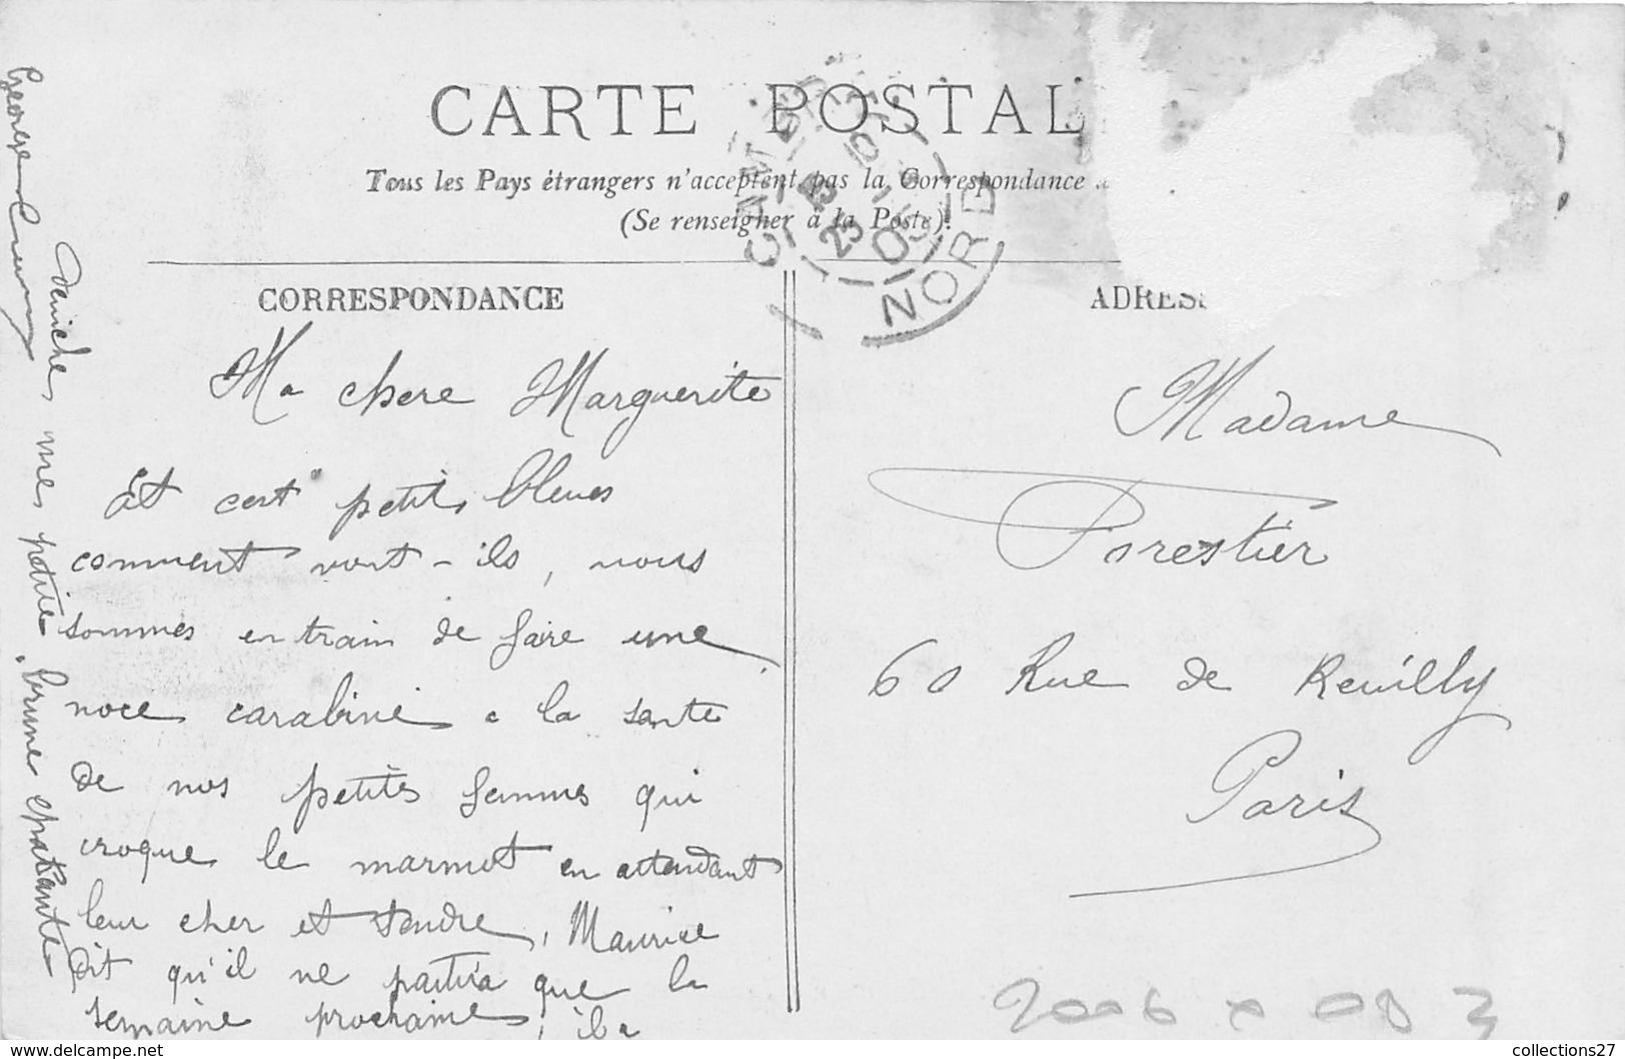 CARTE POSTAL
Tous les Pays étrangers n'acceptent pas la Correspondance
(Se renseigner à la Poste).
CAMBRAI
23
NORD
CORRESPONDANCE
ADRES
Ma chere Marguerite
Et cert petits bleues
comment vont-ils, nous
sommes en train de faire une
noce carabine a la sante
de nos petites femmes qui
croque le marmot en attendant
leur cher et tendre, Maurice
dit qu'il ne partira que la
semaine prochaine, il a
deniche une petite brune epatante
George
Madame
Forestier
60 Rue de Reuilly
Paris
collections27